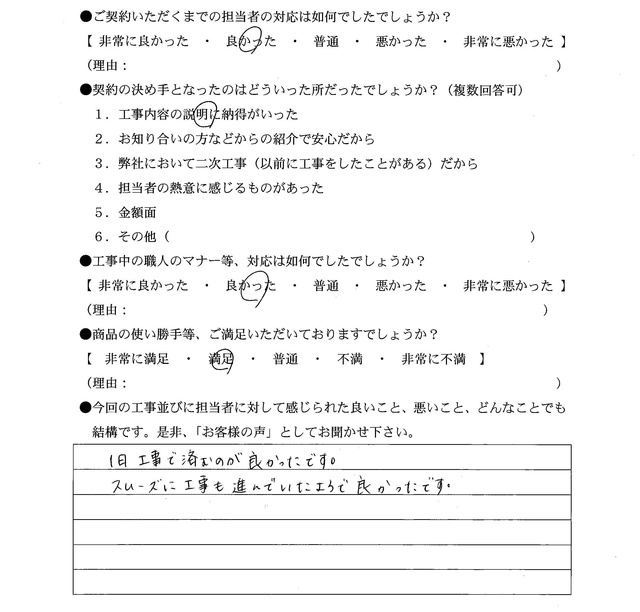 ●ご契約いただくまでの担当者の対応は如何でしたでしょうか?
【 非常に良かった ・ 良かった ・ 普通 ・ 悪かった ・ 非常に悪かった 】
（理由： ）
●契約の決め手となったのはどういった所だったでしょうか?（複数回答可）
1．工事内容の説明に納得がいった
2．お知り合いの方などからの紹介で安心だから
3．弊社において二次工事（以前に工事をしたことがある）だから
4．担当者の熱意に感じるものがあった
5．金額面
6．その他（ ）
●工事中の職人のマナー等、対応は如何でしたでしょうか?
【 非常に良かった ・ 良かった ・ 普通 ・ 悪かった ・ 非常に悪かった 】
（理由： ）
●商品の使い勝手等、ご満足いただいておりますでしょうか?
【 非常に満足 ・ 満足 ・ 普通 ・ 不満 ・ 非常に不満 】
（理由： ）
●今回の工事並びに担当者に対して感じられた良いこと、悪いこと、どんなことでも
結構です。是非、「お客様の声」としてお聞かせ下さい。
1日工事で済むのが良かったです。
スムーズに工事も進んでいたようで良かったです。